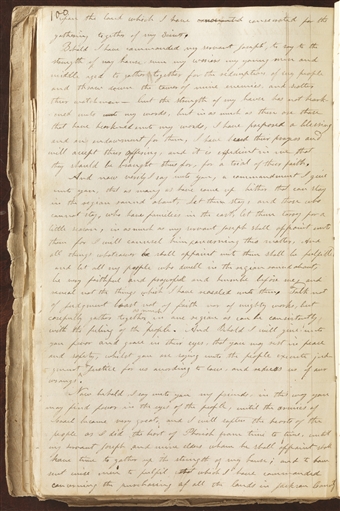 100
upon the land which I have consecrated for the
gathering together of my Saints.
Behold I have commanded my servant Joseph, to say to the
strength of my house, even my warriors my young men and
middle aged to gather together for the redemption of my people
and throw down the towers of mine enemies, and scatter
their watchmen— but the strength of my house has not heark-
ened unto my words, but in as much as there are those
that have hearkened unto my words, I have prepared a blessing
and an endowment for them, I have heard their prayers and
will accept their offering, and it is expedient in me that
they should be brought thus far, for a trial of their faith.
And now verily I say unto you, a commandment I give
unto you, that as many as have come up hither that can stay
in the region round about, let them stay, and those who
cannot stay, who have families in the east, let them tarry for a
little season, in as much as my servant Joseph shall appoint unto
them for I will counsel him concerning this matter, And
all things whatsoever he shall appoint unto them shall be fulfilled
and let all my people who dwell in the region round about,
be very faithful and prayerful and humble before me, and
reveal not the things which I have revealed unto them. Talk not
of judgement boast not of faith nor of mighty works, but
carefully gather together in one region as can be consistently
with the feelings of the people. And Behold I will give unto
you favor and grace in their eyes, that you may rest in peace
and safety, whilst you are saying unto the people execute judg-
ement justice for us according to law, and redress us of our
wrongs.
Now behold I say unto you my friends, in this way you
may find favor in the eyes of the people, until the armies of
Israel become very great, and I will soften the hearts of the
people as I did the heart of Pharaoh from time to time, until
my servant Joseph and mine elders whom he shall appoint shall
have time to gather up the strength of my house; and to have
sent wise men to fulfil that which I have commanded
concerning the purchasing of all the lands in Jackson County